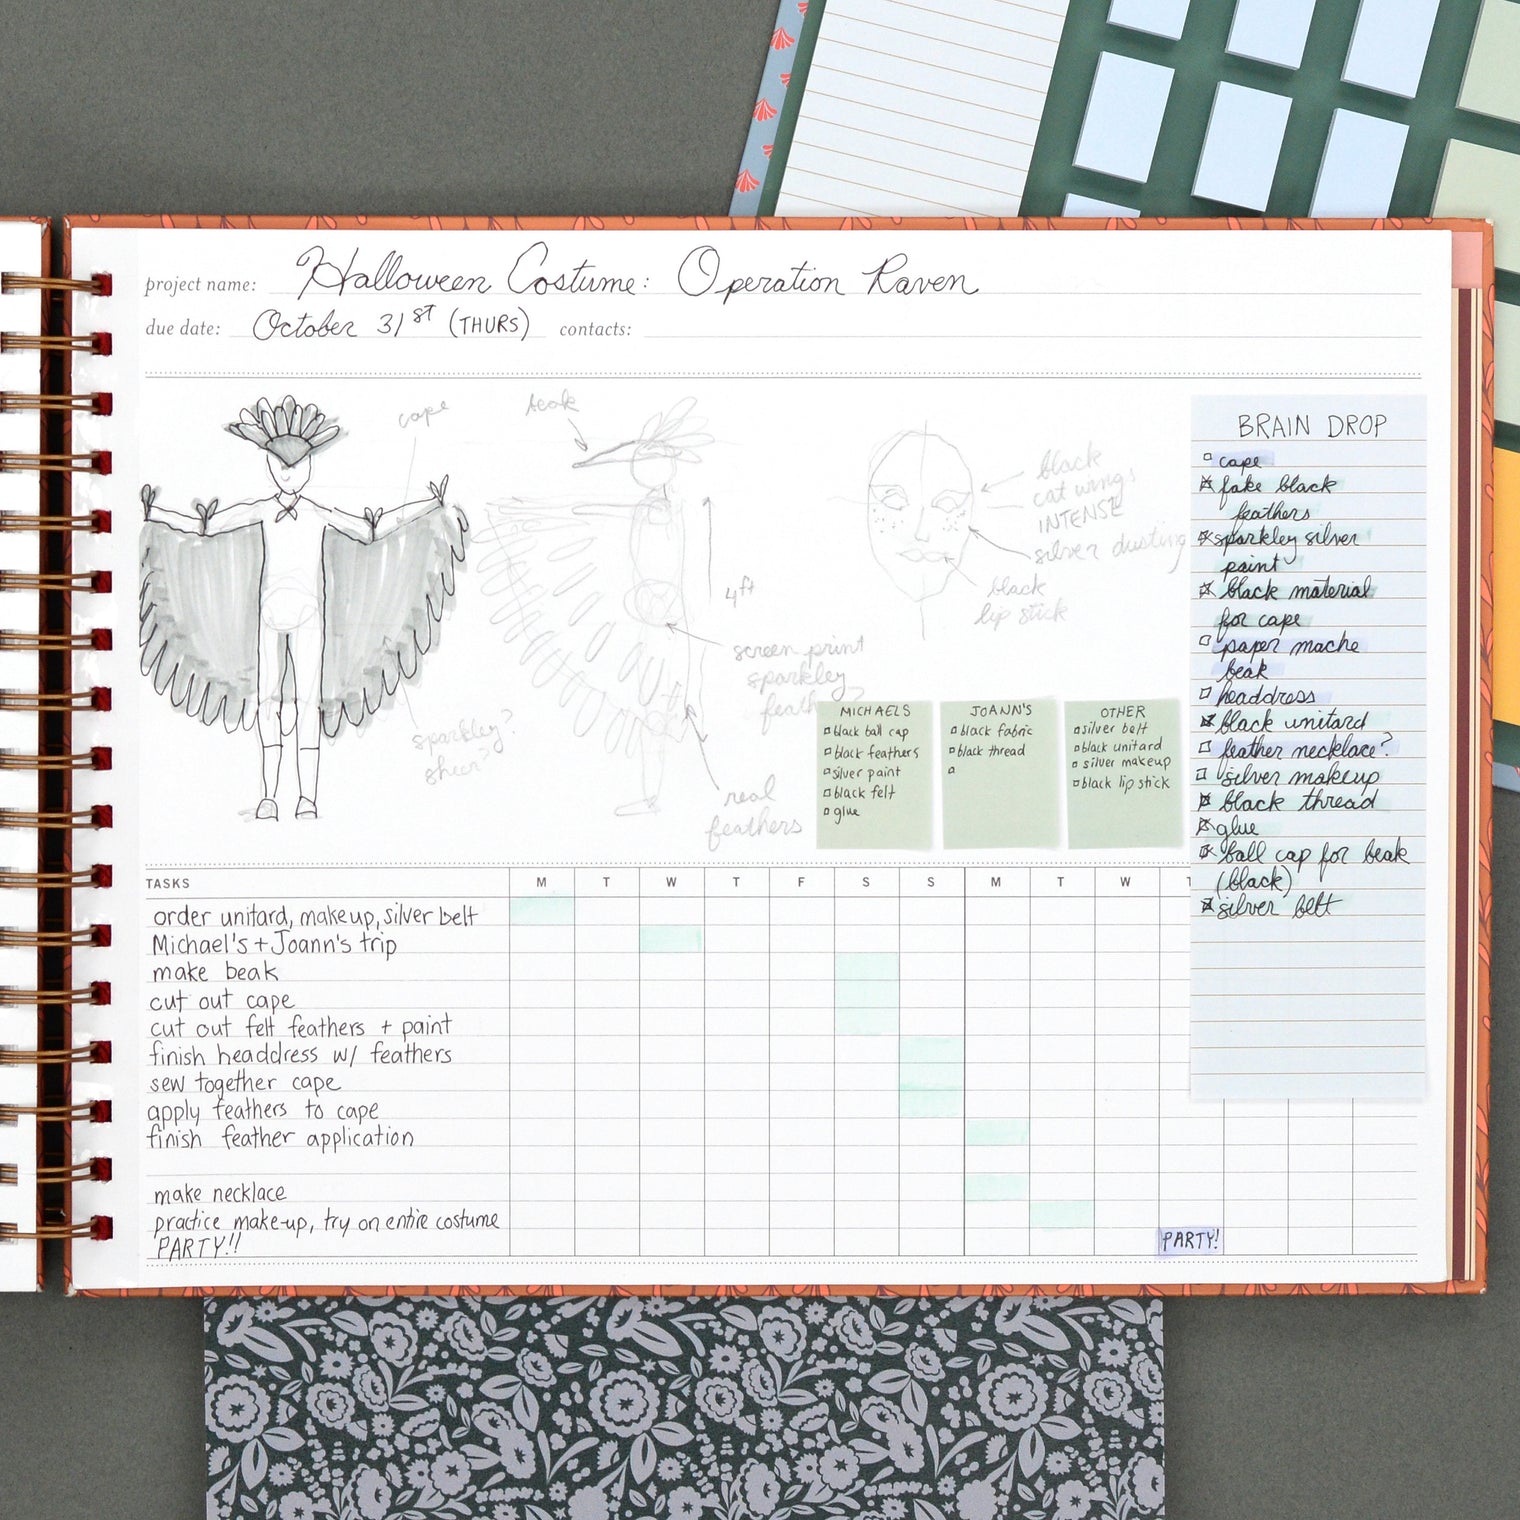 project name: Halloween Costume: Operation Raven
due date: October 31st (THURS) contacts:
cape
beak
black
cat wings
INTENSE
silver dusting
black
lip stick
4ft
screen print
sparkley
feath
sparkley?
sheer?
real
feathers
MICHAELS
black ball cap
black feathers
silver paint
black felt
glue
JOANN'S
black fabric
black thread
OTHER
silver belt
black unitard
silver makeup
black lip stick
BRAIN DROP
cape
fake black
feathers
sparkley silver
paint
black material
for cape
paper mache
beak
headdress
black unitard
feather necklace?
silver makeup
black thread
glue
ball cap for beak
(black)
silver belt
TASKS M T W T F S S M T W T
order unitard, makeup, silver belt
Michael's + Joann's trip
make beak
cut out cape
cut out felt feathers + paint
finish headdress w/ feathers
sew together cape
apply feathers to cape
finish feather application
make necklace
practice make-up, try on entire costume
PARTY!! PARTY!